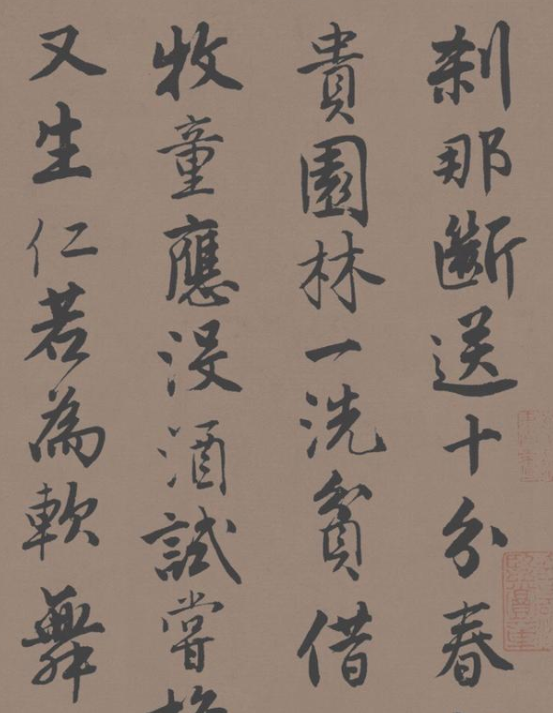 刹那斷送十分春
貴園林一洗貧借
牧童應沒酒試嘗
又生仁若為軟舞